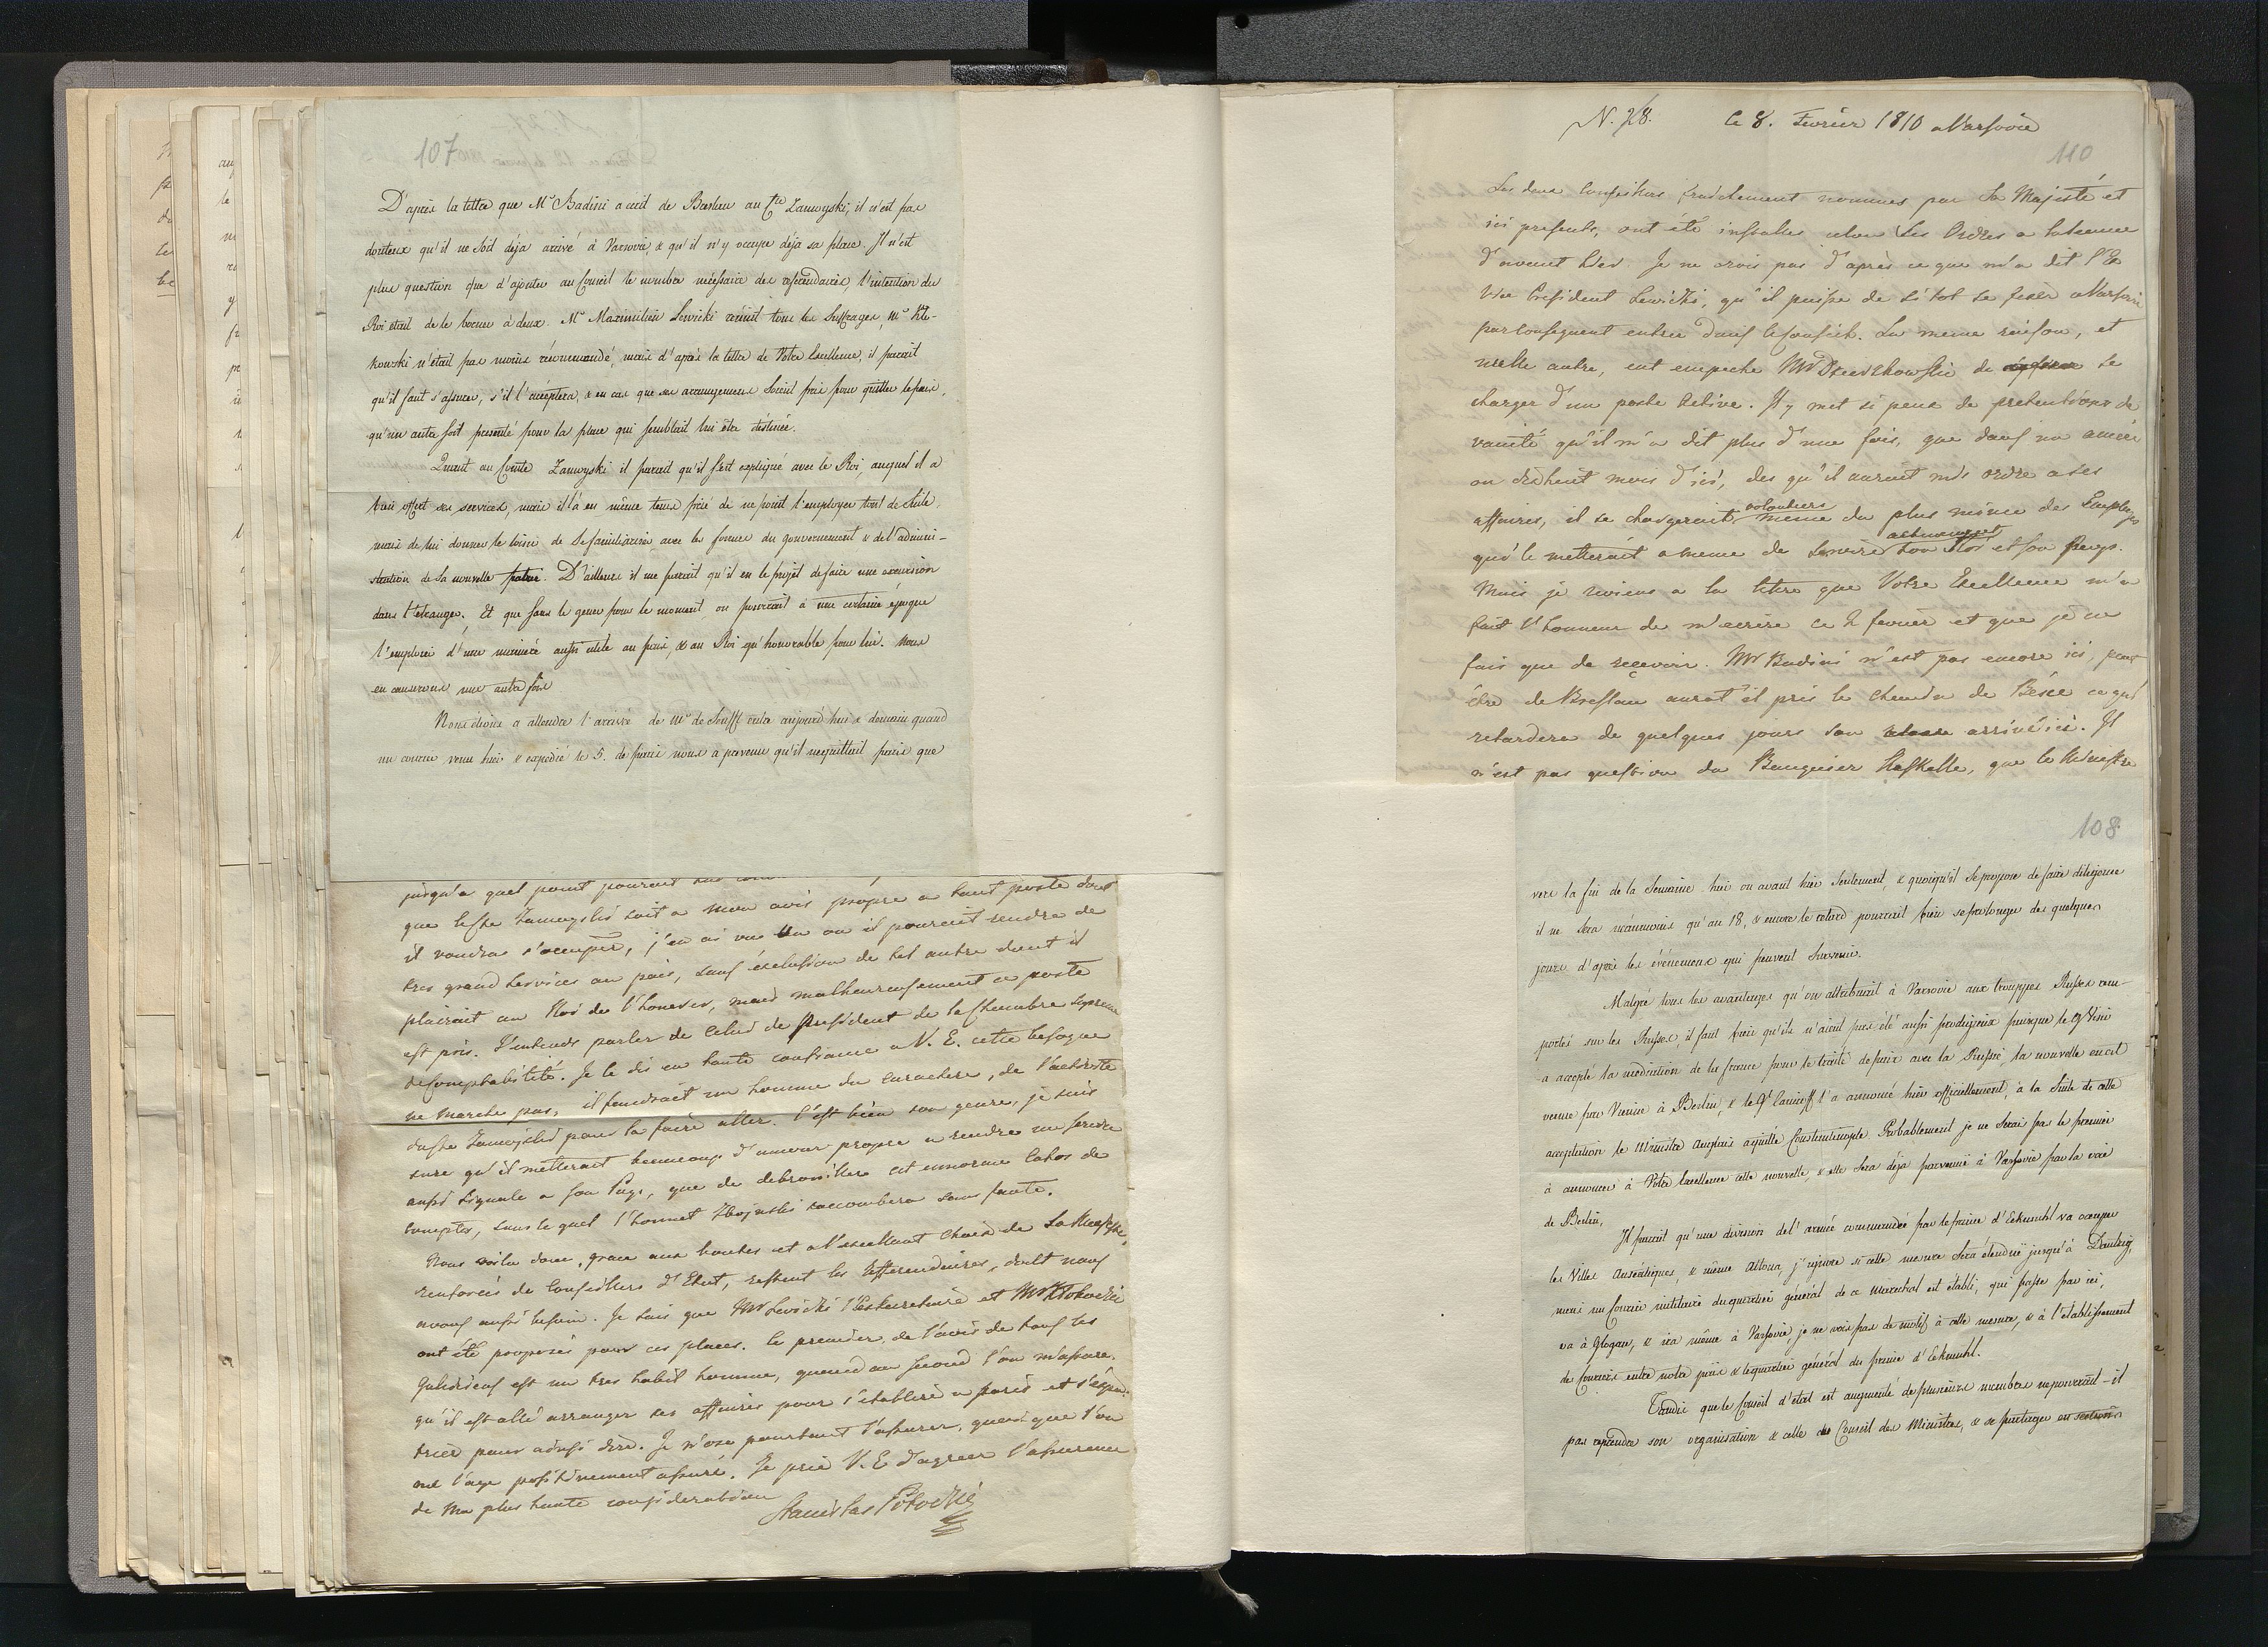 107
D'après la lettre que Mr Badini a écrit de Breslau au Cte Zamoyski, il n'est pas
douteux qu'il ne soit déja arrivé à Varsovie, & qu'il n'y occupe déja sa place. Il n'est
plus question que d'ajouter au Conseil le nombre nécessaire des referendaires, l'intention du
Roi étoit de le borner à deux. Mr Maximilien Lewicki réunit tous les suffrages, Mr Klo-
kowski n'était pas moins récommandé, mais d'après la lettre de Votre Excellence, il parait
qu'il faut s'assurer, s'il l'acceptera, & en cas que ses arrangemens soient pris pour quitter le pais,
qu'un autre soit presenté pour la place qui semblait lui être destinée.
Quant au Comte Zamoyski il parait qu'il s'est expliqué avec le Roi, auquel il a
bien offert ses services, mais il l'a en même tems prié de ne point l'employer tout de suite,
mais de lui donner le loisir de se familiariser avec les formes du gouvernement & de l'admini-
stration de sa nouvelle patrie. D'ailleurs il me parait qu'il eu le projet de faire une excursion
dans l'étranger. Et que sans le gener pour le moment on pourrait à une certaine epoque
l'emploier d'une manière aussi utile au pais, & au Roi qu'honorable pour lui. Nous
en causerons une autre fois
Nous étions a attendre l'arrivé de Mr de Senfft entre aujourd'hui & demain quand
un courrier venu hier & expedié le 5. de paris nous a prevenu qu'il ne quittait paris que
jusqu'a quel point pourent
que le Cte Zamoyski soit a mon avis propre a tout poste dont
il voudra s'occuper, j'en ai vu un ou il pourroit rendre de
tres grand services au païs, sans éxclusion de tel autre dont il
plairoit au Roi de l'honorer, mais malheureusement ce poste
est pris. J'entends parler de celui de president de la Chambre supreme
de Comptabilité. Je le dis en toute confiance a V. E. cette besogne
ne marche pas, il faudroit un homme du caractere, de l'activité
du Cte Zamoyski pour la faire aller. C'est bien son genre, je suis
sure qu'il metteroit beaucoup d'amour propre a rendre un service
aussi signale a son Pays, que de debrouiller cet enorme Cahos de
comptes, sous le quel l'honnet Zboinski succombera sans faute.
Nous voila donc, grace aux bontes et a l'excellant choix de Sa Majesté,
renforcés de Conseillers d'Etat, restent les Refferendaires, dont nous
avons aussi besoin. Je sais que Mr Lewicki l'Exsecretaire et Mr Klokocki
ont été proposés pour ces places. le premier, de l'avis de tous les
Galiciens est un tres habil homme, quand au second l'on m'assure
qu'il est allé arranger ses affaires pour s'etablire a paris et s'expa-
trier pour ainsi dire. Je n'ose pourtant l'assurer, quoi que l'on
me l'aye positivement assuré. Je prie V. E d'agreer l'assurance
de ma plus haute consideration
Stanislas Potocki
N. 28. Ce 8. Fevrier 1810 a Varsovie
110
Les deux Conseillers fraichement nommes par Sa Majesté et
ici presents, ont été installes selon Ses Ordres a la seance
d'avant hier. Je ne crois pas d'apres ce que m'a dit l'Ex
Vice President Lewicki, qu'il puisse de si tot se fixer a Varsovie
par consequent entrer dans le Conseil. La meme raison, et
nulle autre, ont empeche Mr Drewnowski de se
charger d'un poste active. Il y met si peu de pretentions de
vanité qu'il m'a dit plus d'une fois, que dans un anée
ou dixhuit mois d'ici, des qu'il auroit mis ordre a ses
affaires, il se chargeroit volontiers meme du plus mince des Emplois
qui le metteroit a meme de servire activement son Roi et son Pays.
Mais je reviens a la lettre que Votre Excellence m'a
fait l'honneur de m'ecrire ce 2 fevrier et que je ne
fais que de reçevoir. Mr Badini n'est pas encore ici, peut
être de Breslau aurat'il pris le chemin de Bésce ce qui
retardera de quelques jours son arrivé ici. Il
n'est pas question du Banquier Haskelle, que le Ministre
108
vers la fin de la semaine hier ou avant hier seulement, & quoiqu'il se propose de faire diligence
il ne sera néanmoins qu'au 18, & encore le retard pourrait bien se prolonger de quelques
jours d'après les événemens qui peuvent survenir.
Malgré tous les avantages qu'on attribuait à Varsovie aux trouppes Russes rem-
portés sur les Russes, il faut bien qu'ils n'aient pas été aussi prodigieux puisque le Gd Visir
a accepté la médiation de la france pour le traité de paix avec la Russie, la nouvelle en est
venue par Vienne à Berlin, & le Gl Canicoff l'a annoncé hier officiellement, à la suite de cette
acceptation le Ministre Anglais a quitté Constantinople. Probablement je ne serai pas le premier
à annoncer à Votre Excellence cette nouvelle, & elle sera déja parvenuë à Varsovie par la voie
de Berlin.
Il parait qu'une division de l'armée commandée par le prince d'Eckmuhl va occuper
les Villes Anséatiques, & même Altona, j'ignore si cette mesure sera étenduë jusqu'à Dantzig,
mais un Courier militaire du quartier général de ce Marechal est etabli, qui passe par ici,
va à Glogau, & ira même à Varsovie, je ne vois pas de motif à cette mesure, & à l'établissement
de Couriers entre notre pais & le quartier général du prince d'Eckmuhl.
Tandis que le Conseil d'etat est augmenté de plusieurs membres ne pourrait-il
pas reprendre son organisation & celle du Conseil des Ministres, & se partager en sections